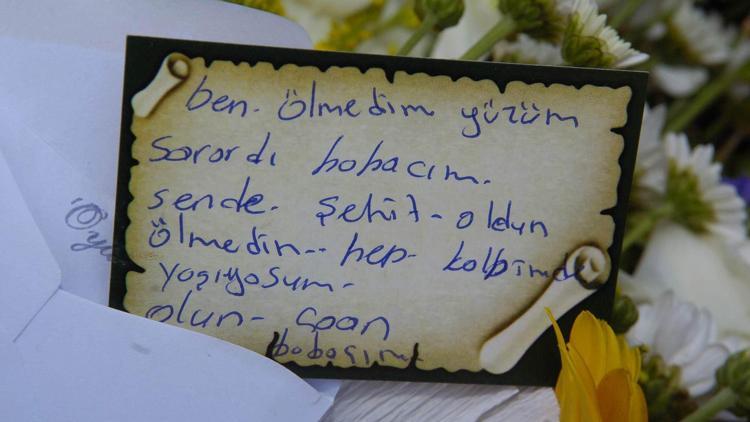 ben. ölmedim yüzüm
sarardı babacım.
sende. şehit- oldun
ölmedin.. hep- kalbimde
yaşıyosum.
olun- canan
babacım